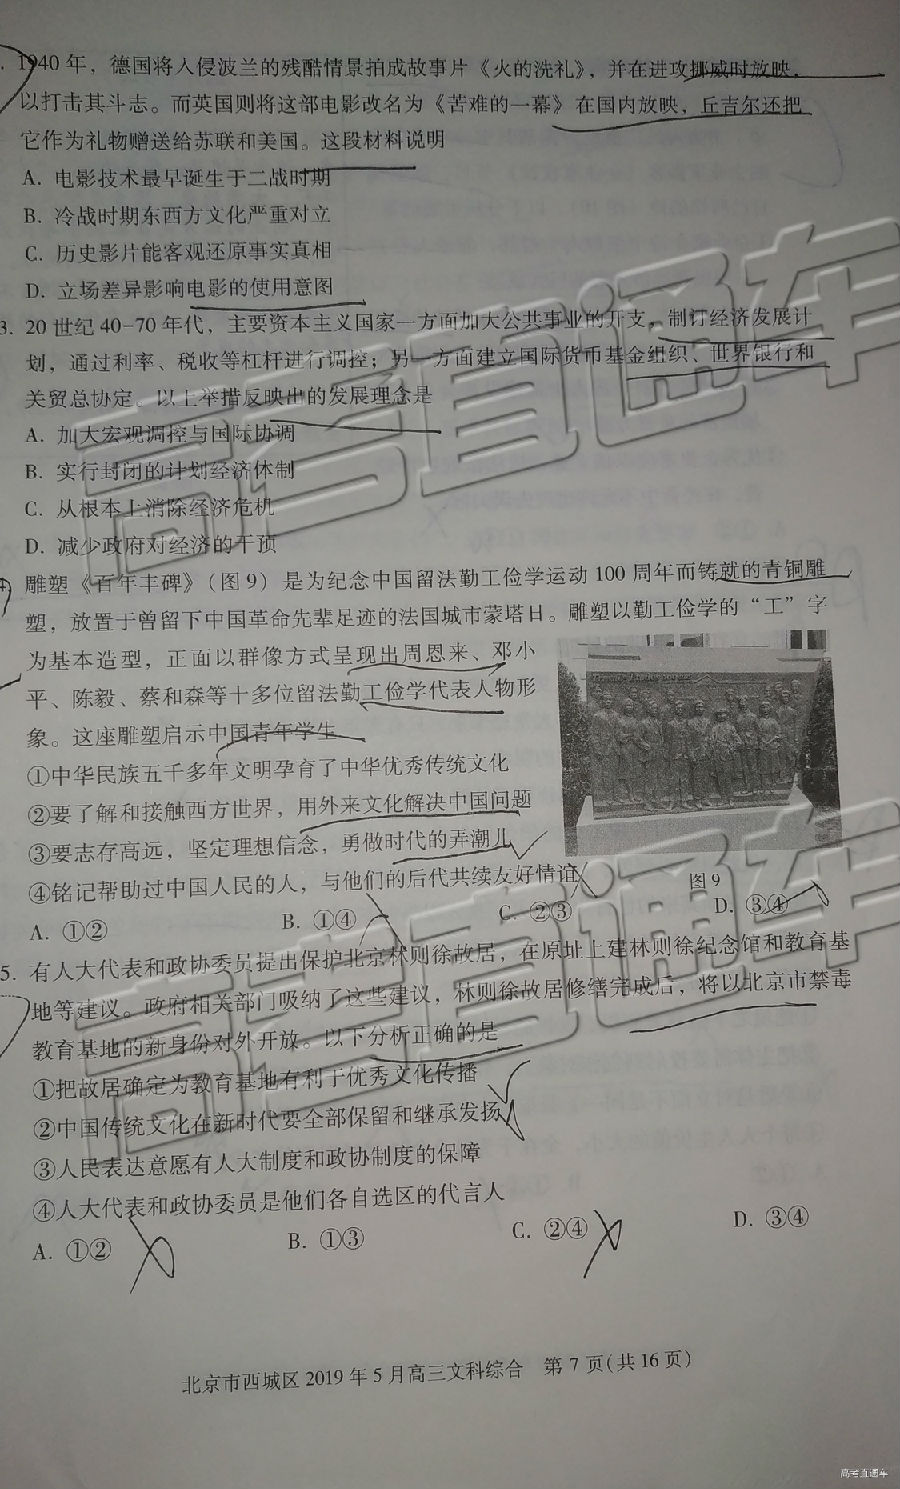 1940 年，德国将入侵波兰的残酷情景拍成故事片《火的洗礼》，并在进攻挪威时放映，
以打击其斗志。而英国则将这部电影改名为《苦难的一幕》在国内放映，丘吉尔还把
它作为礼物赠送给苏联和美国。这段材料说明
A. 电影技术最早诞生于二战时期
B. 冷战时期东西方文化严重对立
C. 历史影片能客观还原事实真相
D. 立场差异影响电影的使用意图
3. 20 世纪 40-70 年代，主要资本主义国家一方面加大公共事业的开支，制订经济发展计
划，通过利率、税收等杠杆进行调控；另一方面建立国际货币基金组织、世界银行和
关贸总协定。以上举措反映出的发展理念是
A. 加大宏观调控与国际协调
B. 实行封闭的计划经济体制
C. 从根本上消除经济危机
D. 减少政府对经济的干预
雕塑《百年丰碑》（图 9）是为纪念中国留法勤工俭学运动 100 周年而铸就的青铜雕
塑，放置于曾留下中国革命先辈足迹的法国城市蒙塔日。雕塑以勤工俭学的“工”字
为基本造型，正面以群像方式呈现出周恩来、邓小
平、陈毅、蔡和森等十多位留法勤工俭学代表人物形
象。这座雕塑启示中国青年学生
①中华民族五千多年文明孕育了中华优秀传统文化
②要了解和接触西方世界，用外来文化解决中国问题
③要志存高远，坚定理想信念，勇做时代的弄潮儿
④铭记帮助过中国人民的人，与他们的后代共续友好情谊
图 9
A. ①② B. ①④ C. ②③ D. ③④
5. 有人大代表和政协委员提出保护北京林则徐故居，在原址上建林则徐纪念馆和教育基
地等建议。政府相关部门吸纳了这些建议，林则徐故居修缮完成后，将以北京市禁毒
教育基地的新身份对外开放。以下分析正确的是
①把故居确定为教育基地有利于优秀文化传播
②中国传统文化在新时代要全部保留和继承发扬
③人民表达意愿有人大制度和政协制度的保障
④人大代表和政协委员是他们各自选区的代言人
A. ①② B. ①③ C. ②④ D. ③④
北京市西城区 2019 年 5 月高三文科综合 第 7 页（共 16 页）
高考直通车
高考直通车
高考直通车